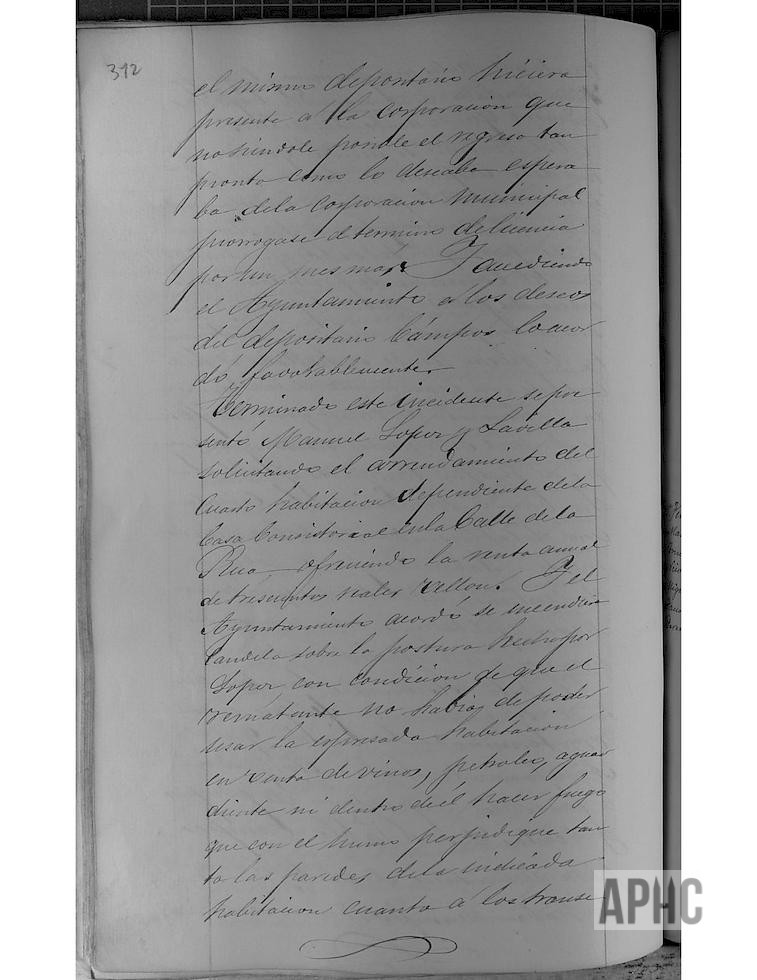 392
el mismo depositario hiciera
presente á la corporacion que
no siendole posible el regreso tan
pronto como lo deseaba espera
ba dela Corporacion Municipal
prorrogase el termino de licencia
por un mes mas. Y accediendo
el Ayuntamiento á los deseos
del depositario Campos lo acor
dó favorablemente.
Terminado este incidente se pre
sentó Manuel Lopez y Lavilla
solicitando el arrendamiento del
Cuarto habitacion dependiente dela
Casa Consistorial en la Calle de la
Rua, ofreciendo la renta anual
de trescientos reales vellon. Y el
Ayuntamiento acordó se encendiera
Candela sobre la postura hecha por
Lopez con condicion de que el
rematante no habia de poder
usar la espresada habitacion
en venta de vinos, petroleo, aguar
diente ni dentro de él hacer fuego
que con el humo perjudique tan
to las paredes dela indicada
habitacion cuanto á los transe
APHC